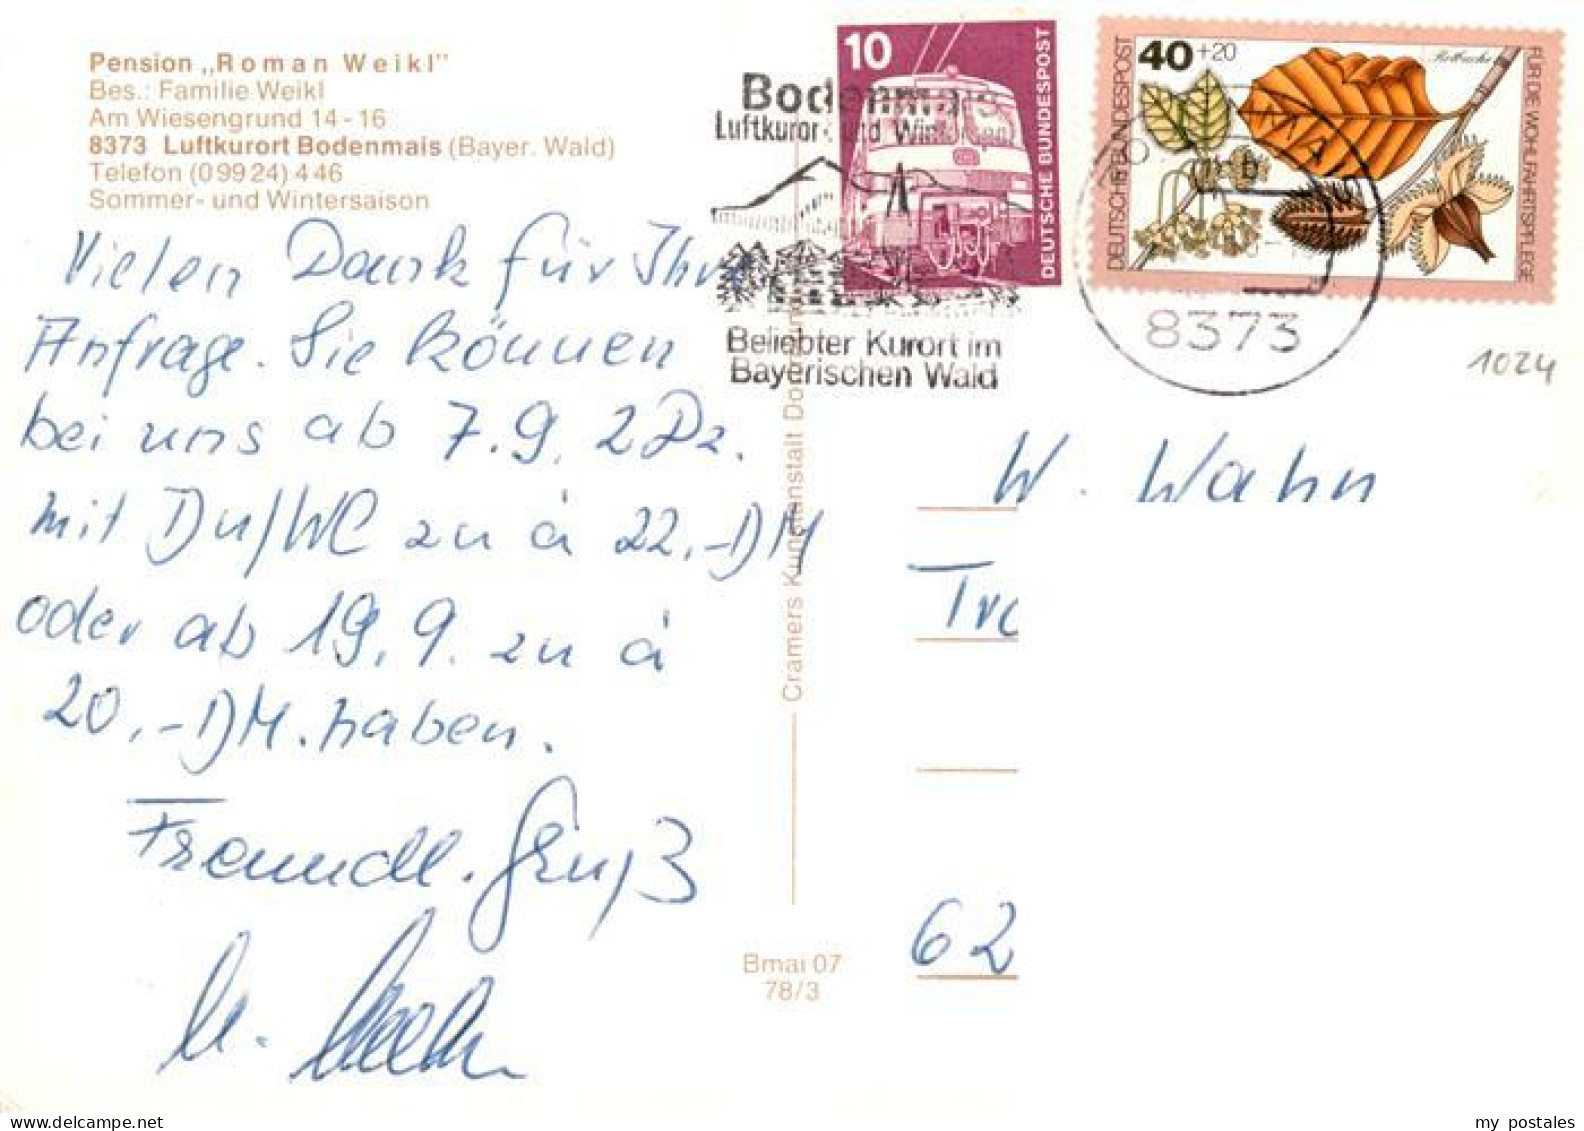 Pension „Roman Weikl"
Bes.: Familie Weikl
Am Wiesengrund 14-16
8373 Luftkurort Bodenmais (Bayer. Wald)
Telefon (09924) 446
Sommer- und Wintersaison
Vielen Dank für Ihre
Anfrage. Sie können
bei uns ab 7.9. 2 Dz.
mit Du/WC zu à 22,-DM
oder ab 19.9. zu à
20,-DM. haben.
Freundl. Gruß
Cramers Kunstanstalt
Bmai 07
78/3
Bodenmais
Luftkurort und Wintersport
Beliebter Kurort im
Bayerischen Wald
10
DEUTSCHE BUNDESPOST
40+20
Rotbuche
DEUTSCHE BUNDESPOST
FÜR DIE WOHLFAHRTSPFLEGE
b
8373
1024
W. Wahn
62
my postales